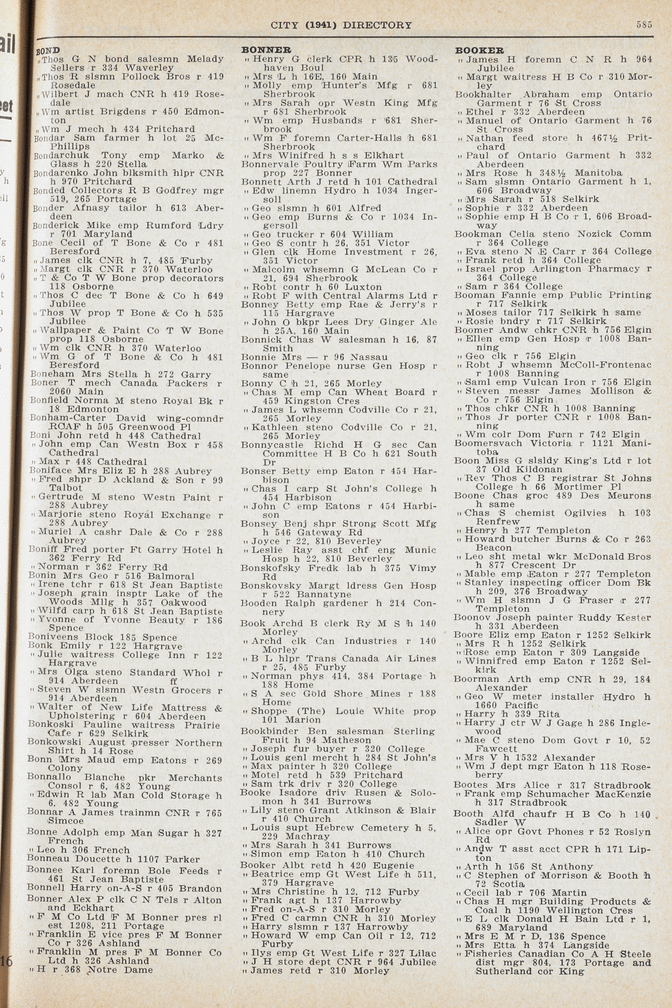 CITY (1941) DIRECTORY 585
BOND
" Thos G N bond salesmn Melady
Sellers r 334 Waverley
" Thos R slsmn Pollock Bros r 419
Rosedale
" Wilbert J mach CNR h 419 Rose-
dale
" Wm artist Brigdens r 450 Edmon-
ton
" Wm J mech h 434 Pritchard
Bondar Sam farmer h lot 25 Mc-
Phillips
Bondarchuk Tony emp Marko &
Glass h 220 Stella
Bondarenko John blksmith hlpr CNR
h 970 Pritchard
Bonded Collectors R B Godfrey mgr
519, 265 Portage
Bonder Afnasy tailor h 613 Aber-
deen
Bonderick Mike emp Rumford Ldry
r 701 Maryland
Bone Cecil of T Bone & Co r 481
Beresford
" James clk CNR h 7, 485 Furby
" Margt clk CNR r 370 Waterloo
" T & Co T W Bone prop decorators
118 Osborne
" Thos C dec T Bone & Co h 649
Jubilee
" Thos W prop T Bone & Co h 535
Jubilee
" Wallpaper & Paint Co T W Bone
prop 118 Osborne
" Wm clk CNR h 370 Waterloo
" Wm G of T Bone & Co h 481
Beresford
Boneham Mrs Stella h 272 Garry
Boner T mech Canada Packers r
2060 Main
Bonfield Norma M steno Royal Bk r
18 Edmonton
Bonham-Carter David wing-comndr
RCAF h 505 Greenwood Pl
Boni John retd h 448 Cathedral
" John emp Can Westn Box r 458
Cathedral
" Max r 448 Cathedral
Boniface Mrs Eliz E h 288 Aubrey
" Fred shpr D Ackland & Son r 99
Talbot
" Gertrude M steno Westn Paint r
288 Aubrey
" Marjorie steno Royal Exchange r
288 Aubrey
" Muriel A cashr Dale & Co r 288
Aubrey
Boniff Fred porter Ft Garry Hotel h
362 Ferry Rd
" Norman r 362 Ferry Rd
Bonin Mrs Geo r 516 Balmoral
" Irene tchr r 618 St Jean Baptiste
" Joseph grain insptr Lake of the
Woods Mllg h 357 Oakwood
" Wilfd carp h 618 St Jean Baptiste
" Yvonne of Yvonne Beauty r 186
Spence
Boniveens Block 185 Spence
Bonk Emily r 122 Hargrave
" Julie waitress College Inn r 122
Hargrave
" Mrs Olga steno Standard Whol r
914 Aberdeen ff
" Steven W slsmn Westn Grocers r
914 Aberdeen
" Walter of New Life Mattress &
Upholstering r 604 Aberdeen
Bonkoski Pauline waitress Prairie
Cafe r 629 Selkirk
Bonkowski August presser Northern
Shirt h 14 Rose
Bonn Mrs Maud emp Eatons r 269
Colony
Bonnallo Blanche pkr Merchants
Consol r 6, 482 Young
" Edwin R lab Man Cold Storage h
6, 482 Young
Bonnar A James trainmn CNR r 765
Simcoe
Bonne Adolph emp Man Sugar h 327
French
" Leo h 306 French
Bonneau Doucette h 1107 Parker
Bonnee Karl foremn Bole Feeds r
461 St Jean Baptiste
Bonnell Harry on-A-S r 405 Brandon
Bonner Alex P clk C N Tels r Alton
and Eckhart
" F M Co Ltd F M Bonner pres rl
est 1208, 211 Portage
" Franklin E vice pres F M Bonner
Co r 326 Ashland
" Franklin M pres F M Bonner Co
Ltd h 326 Ashland
" H r 368 Notre Dame
BONNER
" Henry G clerk CPR h 135 Wood-
haven Boul
" Mrs L h 16E, 160 Main
" Molly emp Hunter's Mfg r 681
Sherbrook
" Mrs Sarah opr Westn King Mfg
r 681 Sherbrook
" Wm emp Husbands r 681 Sher-
brook
" Wm F foremn Carter-Halls h 681
Sherbrook
" Mrs Winifred h s s Elkhart
Bonnervale Poultry Farm Wm Parks
prop 227 Bonner
Bonnett Arth J retd h 101 Cathedral
" Edw linemn Hydro h 1034 Inger-
soll
" Geo slsmn h 601 Alfred
" Geo emp Burns & Co r 1034 In-
gersoll
" Geo trucker r 604 William
" Geo S contr h 26, 351 Victor
" Glen clk Home Investment r 26,
351 Victor
" Malcolm whsemn G McLean Co r
21, 694 Sherbrook
" Robt contr h 60 Luxton
" Robt F with Central Alarms Ltd r
Bonney Betty emp Rae & Jerry's r
115 Hargrave
" John O bkpr Lees Dry Ginger Ale
h 25A, 160 Main
Bonnick Chas W salesman h 16, 87
Smith
Bonnie Mrs — r 96 Nassau
Bonnor Penelope nurse Gen Hosp r
same
Bonny C h 21, 265 Morley
" Chas M emp Can Wheat Board r
459 Kingston Cres
" James L whsemn Codville Co r 21,
265 Morley
" Kathleen steno Codville Co r 21,
265 Morley
Bonnycastle Richd H G sec Can
Committee H B Co h 621 South
Dr
Bonser Betty emp Eaton r 454 Har-
bison
" Chas I carp St John's College h
454 Harbison
" John C emp Eatons r 454 Harbi-
son
Bonsey Benj shpr Strong Scott Mfg
h 546 Gateway Rd
" Joyce r 22, 810 Beverley
" Leslie Ray asst chf eng Munic
Hosp h 22, 810 Beverley
Bonskofsky Fredk lab h 375 Vimy
Rd
Bonskovsky Margt ldress Gen Hosp
r 522 Bannatyne
Booden Ralph gardener h 214 Con-
nery
Book Archd B clerk Ry M S h 140
Morley
" Archd clk Can Industries r 140
Morley
" B L hlpr Trans Canada Air Lines
r 25, 485 Furby
" Norman phys 414, 384 Portage h
188 Home
" S A sec Gold Shore Mines r 188
Home
" Shoppe (The) Louie White prop
101 Marion
Bookbinder Ben salesman Sterling
Fruit h 94 Matheson
" Joseph fur buyer r 320 College
" Louis genl mercht h 284 St John's
" Max painter h 320 College
" Motel retd h 539 Pritchard
" Sam trk driv r 320 College
Booke Isadore driv Rusen & Solo-
mon h 341 Burrows
" Lily steno Grant Atkinson & Blair
r 410 Church
" Louis supt Hebrew Cemetery h 5,
229 Machray
" Mrs Sarah h 341 Burrows
" Simon emp Eaton h 410 Church
Booker Albt retd h 420 Eugenie
" Beatrice emp Gt West Life h 511,
379 Hargrave
" Mrs Christine h 12, 712 Furby
" Frank agt h 137 Harrowby
" Fred on-A-S r 310 Morley
" Fred C carmn CNR h 310 Morley
" Harry slsmn r 137 Harrowby
" Howard W emp Can Oil r 12, 712
Furby
" Ilys emp Gt West Life r 327 Lilac
" J H store dept CNR r 964 Jubilee
" James retd r 310 Morley
BOOKER
" James H foremn C N R h 964
Jubilee
" Margt waitress H B Co r 310 Mor-
ley
Bookhalter Abraham emp Ontario
Garment r 76 St Cross
" Ethel r 332 Aberdeen
" Manuel of Ontario Garment h 76
St Cross
" Nathan feed store h 467½ Prit-
chard
" Paul of Ontario Garment h 332
Aberdeen
" Mrs Rose h 348½ Manitoba
" Sam slsmn Ontario Garment h 1,
606 Broadway
" Mrs Sarah r 518 Selkirk
" Sophie r 332 Aberdeen
" Sophie emp H B Co r 1, 606 Broad-
way
Bookman Celia steno Nozick Comm
r 364 College
" Eva steno N E Carr r 364 College
" Frank retd h 364 College
" Israel prop Arlington Pharmacy r
364 College
" Sam r 364 College
Booman Fannie emp Public Printing
r 717 Selkirk
" Moses tailor 717 Selkirk h same
" Rosie bndry r 717 Selkirk
Boomer Andw chkr CNR h 756 Elgin
" Ellen emp Gen Hosp r 1008 Ban-
ning
" Geo clk r 756 Elgin
" Robt J whsemn McColl-Frontenac
r 1008 Banning
" Saml emp Vulcan Iron r 756 Elgin
" Steven messr James Mollison &
Co r 756 Elgin
" Thos chkr CNR h 1008 Banning
" Thos Jr porter CNR r 1008 Ban-
ning
" Wm colr Dom Furn r 742 Elgin
Boomersvach Victoria r 1121 Mani-
toba
Boon Miss G slsldy King's Ltd r lot
37 Old Kildonan
" Rev Thos C B registrar St Johns
College h 66 Mortimer Pl
Boone Chas groc 489 Des Meurons
h same
" Chas S chemist Ogilvies h 103
Renfrew
" Henry h 277 Templeton
" Howard butcher Burns & Co r 263
Beacon
" Leo sht metal wkr McDonald Bros
h 877 Crescent Dr
" Mable emp Eaton r 277 Templeton
" Stanley inspecting officer Dom Bk
h 209, 376 Broadway
" Wm H slsmn J G Fraser r 277
Templeton
Boonov Joseph painter Ruddy Kester
h 331 Aberdeen
Boore Eliz emp Eaton r 1252 Selkirk
" Mrs R h 1252 Selkirk
" Rose emp Eaton r 309 Langside
" Winnifred emp Eaton r 1252 Sel-
kirk
Boorman Arth emp CNR h 29, 184
Alexander
" Geo W meter installer Hydro h
1660 Pacific
" Harry h 339 Rita
" Harry J ctr W J Gage h 286 Ingle-
wood
" Mae C steno Dom Govt r 10, 52
Fawcett
" Mrs V h 1532 Alexander
" Wm J dept mgr Eaton h 118 Rose-
berry
Bootes Mrs Alice r 317 Stradbrook
" Frank emp Schumacher MacKenzie
h 317 Stradbrook
Booth Alfd chaufr H B Co h 140
Sadler W
" Alice opr Govt Phones r 52 Roslyn
Rd
" Andw T asst acct CPR h 171 Lip-
ton
" Arth h 156 St Anthony
" C Stephen of Morrison & Booth h
72 Scotia
" Cecil lab r 706 Martin
" Chas H mgr Building Products &
Coal h 1190 Wellington Cres
" E L clk Donald H Bain Ltd r 1,
689 Maryland
" Mrs E M r D, 136 Spence
" Mrs Etta h 374 Langside
" Fisheries Canadian Co A H Steele
dist mgr 804, 173 Portage and
Sutherland cor King